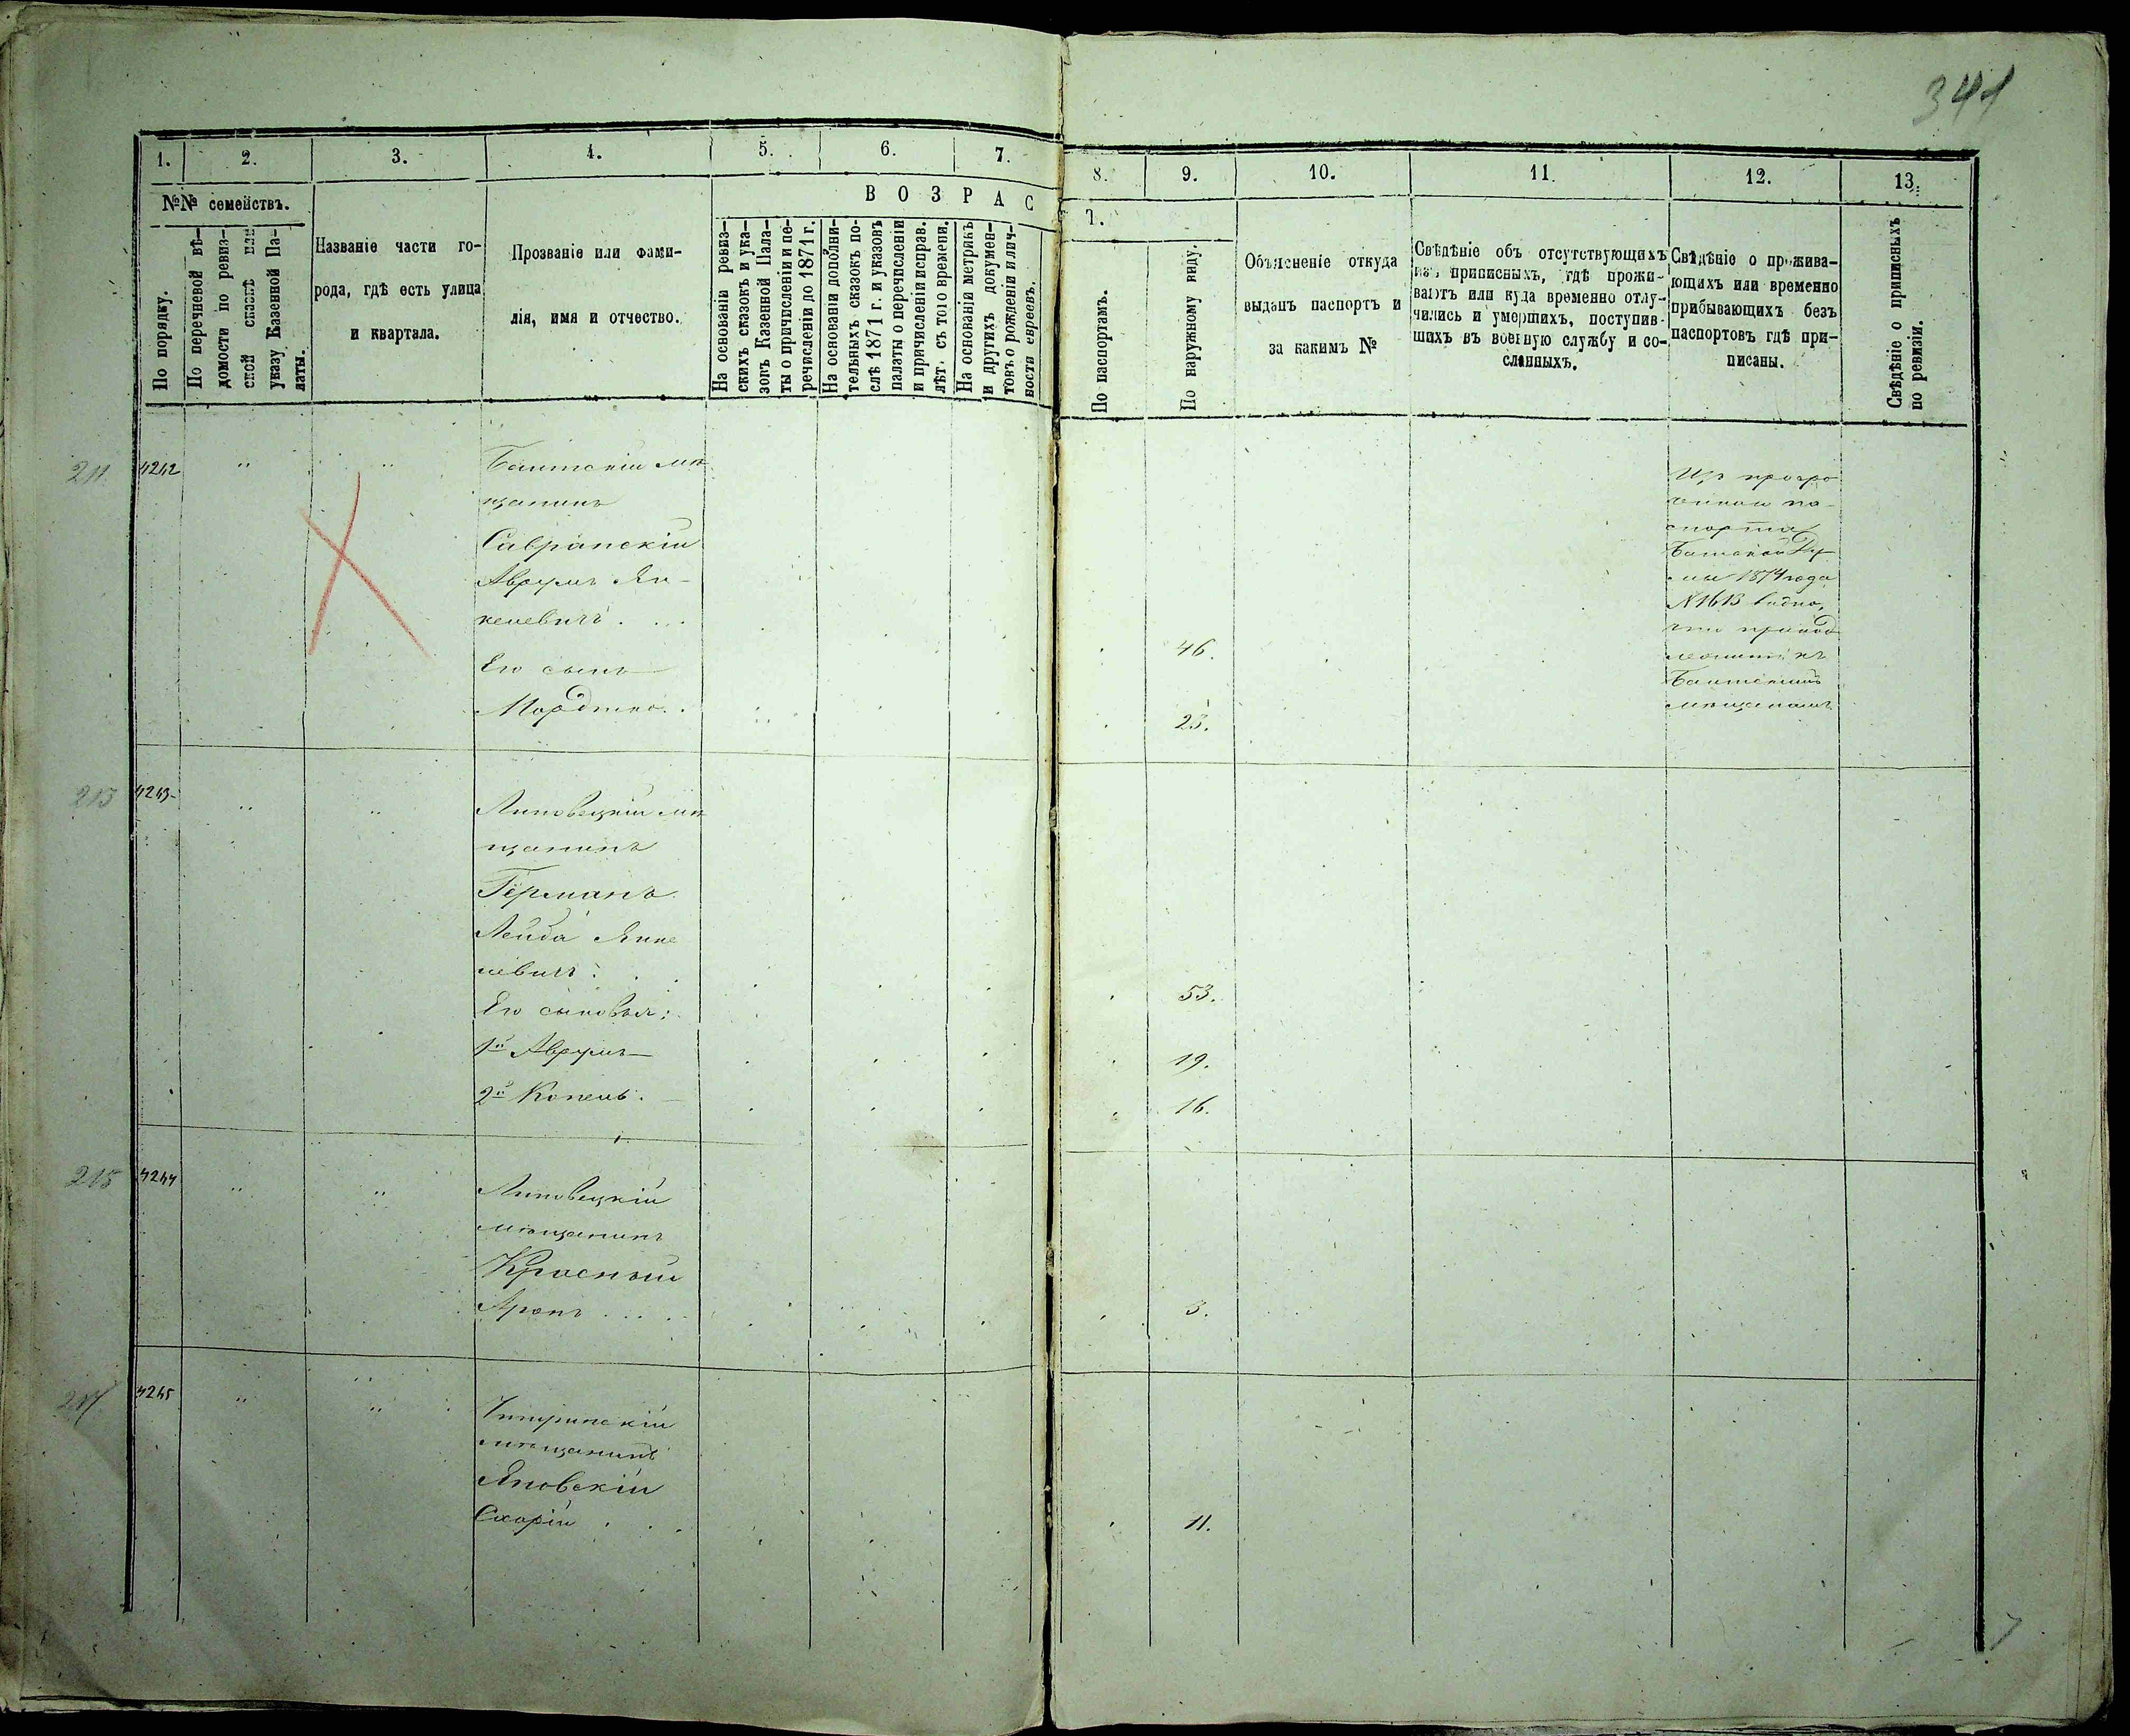 341
1.
2.
3.
4.
5.
6.
7.
8.
9.
10.
11.
12.
13.
№№ семействъ.
По порядку.
По перечневой вѣ-
домости по ревиз-
ской сказкѣ или
указу Казенной Па-
латы.
Названіе части го-
рода, гдѣ есть улица
и квартала.
Прозваніе или фами-
лія, имя и отчество.
ВОЗРАС
Т.
На основаніи ревиз-
скихъ сказокъ и ука-
зовъ Казенной Пала-
ты о причисленіи и пе-
речисленіи до 1871 г.
На основаніи дополни-
тельныхъ сказокъ по-
слѣ 1871 г. и указовъ
палаты о перечисленіи
и причисленіи исправ.
лѣт. съ того времени.
На основаніи метрикъ
и другихъ докумен-
товъ о рожденіи и лич-
ности евреевъ.
По паспортамъ.
По наружному виду.
Объясненіе откуда
выданъ паспортъ и
за какимъ №
Свѣдѣніе объ отсутствующихъ
изъ приписныхъ, гдѣ прожи-
ваютъ или куда временно отлу-
чились и умершихъ, поступив-
шихъ въ военную службу и со-
сланныхъ.
Свѣдѣніе о прожива-
ющихъ или временно
прибывающихъ безъ
паспортовъ гдѣ при-
писаны.
Свѣдѣніе о приписныхъ
по ревизіи.
211
4242
Балтскій мѣ
щанинъ
Савранскій
Аврумъ Ян-
келевичъ . . .
46.
Его сынъ
Мордко. .
23.
Изъ просро
ченной па-
спорта
Балтской Ду-
мы 1874 года
№1613 видно,
что принад
лежитъ къ
Балтскимъ
мѣщанамъ
213
4243
Липовецкій мѣ
щанинъ
Германъ
Лейба Янке
левичъ .
53.
Его сыновья:
1й Аврумъ
19.
2й Копель.
16.
215
4244
Липовецкій
мѣщанинъ
Красный
Аронъ . . . .
3.
217
4245
Чигиринскій
мѣщанинъ
Яновскій
11.